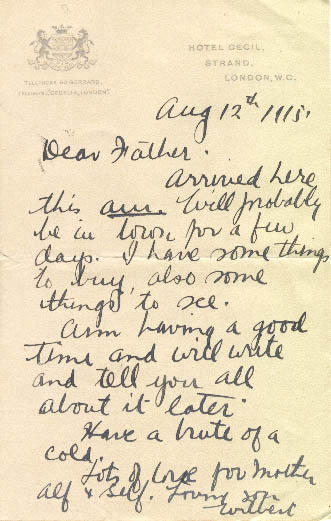 HOTEL CECIL,
STRAND,
LONDON, W.C.
TELEPHONE 60 GERRARD.
TELEGRAMS "CECELIA, LONDON".
Aug 12th 1915.
Dear Father.
Arrived here
this am. Will probably
be in town for a few
days. I have some things
to buy, also some
things to see.
Am having a good
time and will write
and tell you all
about it later.
Have a brute of a
cold.
Lots of love for Mother
Alf & Self. Loving son
Wilbert